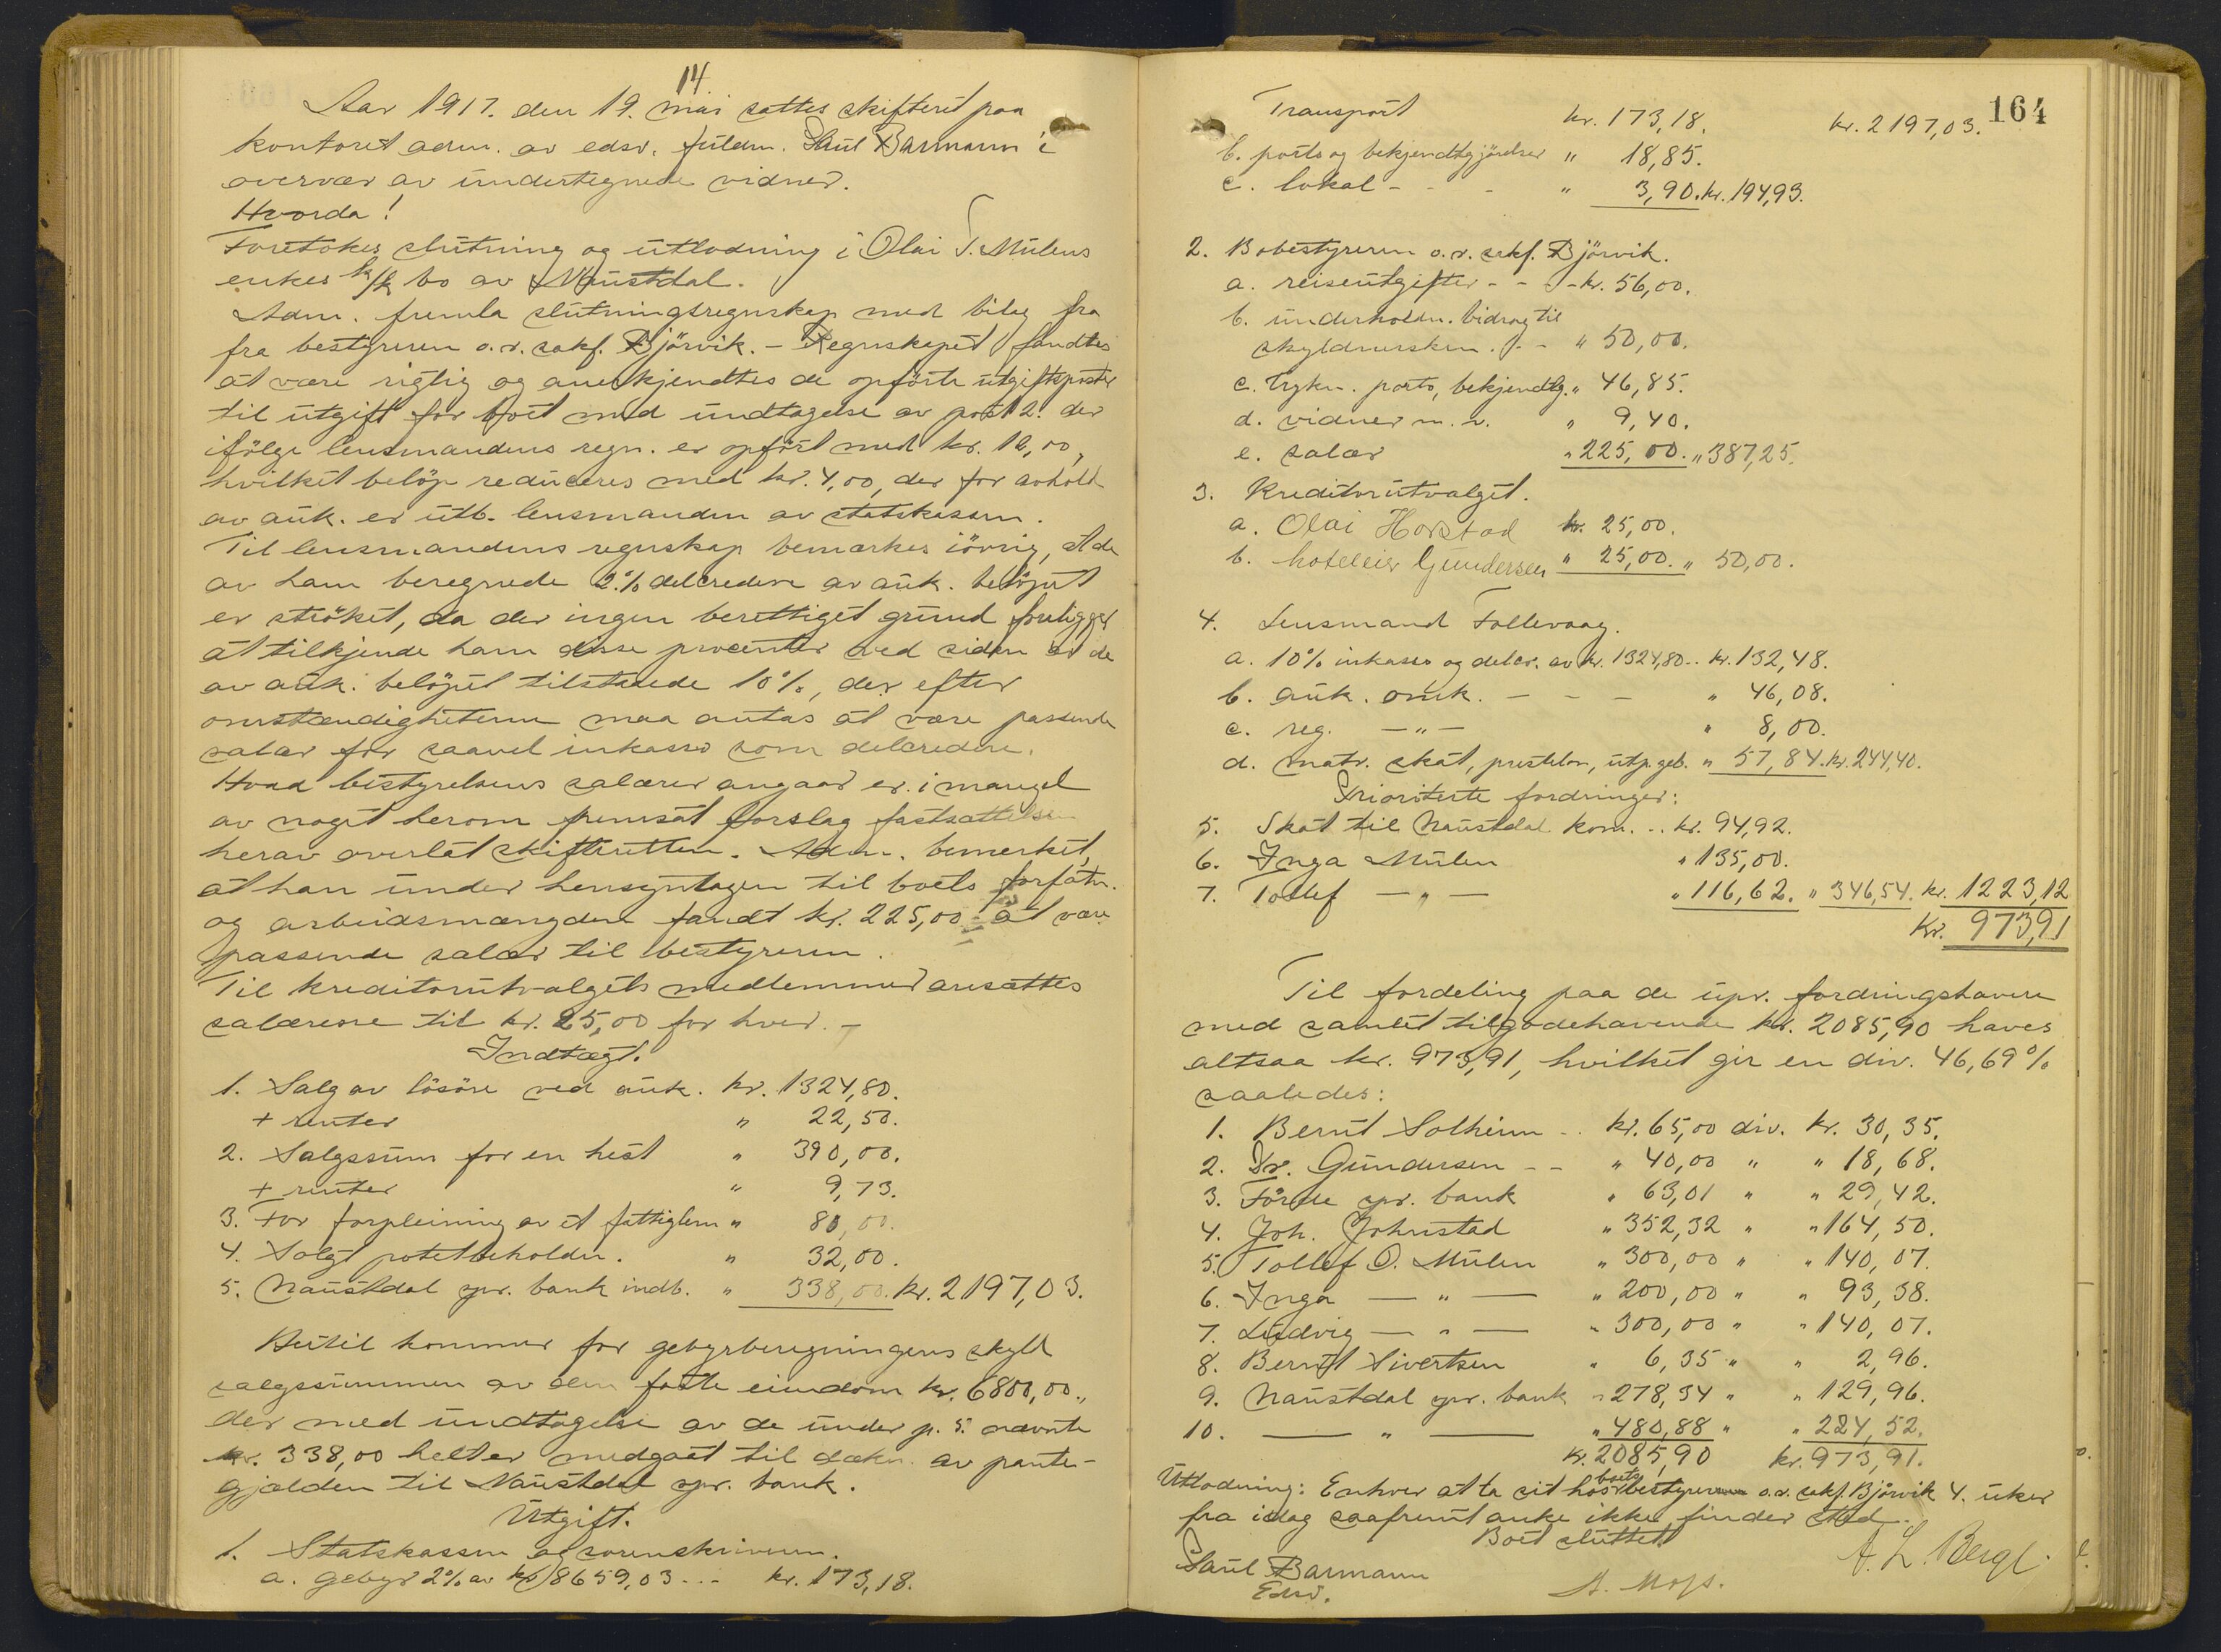 14.
Aar 1917. den 19. mai sattes skifteret paa
kontoret adm. av edsv. fuldm. Paul Barmann i
overvær av undertegnede vidner.
Hvorda!
Foretokes slutning og utlodning i Olai T. Mulens
enkes k/k bo av Naustdal.
Adm. fremla slutningsregnskap med bilag fra
fra bestyreren o.r. sakf. Bjørvik. - Regnskapet fandtes
at være rigtig og anerkjendtes de opførte utgiftsposter
til utgift for boet med undtagelse av post 2. der
ifølge lensmandens regn. er opført med kr. 12,00,
hvilket beløp reduceres med kr. 4,00, der for avholdt
av auk. er utb. lensmanden av statskassen.
Til lensmandens regnskap bemerkes iøvrig, at de
av ham beregnede 2% delcredere av auk. beløpet
er strøket, da der ingen berettiget grund foreligger
at tilkjende ham disse procenter ved siden av de
av auk. beløpet tilstaaede 10%, der efter
omstændigheterne maa antas at være passende
salær for saavel inkasso som delcredere.
Hvad bestyrelsens salærer angaar er i mangel
av noget herom fremsat forslag fastsættelsen
herav overlat skifteretten. Adm. bemerket,
at han under hensyntagen til boets forfatn.
og arbeidsmængden fandt kr. 225,00 at være
passende salær til bestyreren.
Til kreditorutvalgets medlemmer ansattes
salærerne til kr. 25,00 for hver. -
Indtægt.
1. Salg av løsøre ved auk. kr. 1324,80.
+ renter " 22,50.
2. Salgssum for en hest " 390,00.
+ renter " 9,73.
3. For forpleining av et fattiglem " 80,00.
4. Solgt potetbeholdn. " 32,00.
5. Naustdal spr. bank indb. " 338,00. kr. 2197,03.
Hertil kommer for gebyrberegningens skyld
salgssummen av den faste eiendom kr. 6800,00.,
der med undtagelse av de under p. 5. nævnte
kr. 338,00 helt er medgaat til dækn. av pante-
gjælden til Naustdal spr. bank.
Utgift.
1. Statskassen og sorenskriveren.
a. gebyr 2% av kr. 8659,03 - - - kr. 173,18.
164
Transport kr. 173,18. kr. 2197,03.
b. porto og bekjendtgjørelser " 18,85.
c. lokal - - - " 3,90. kr. 194,93.
2. Bobestyreren o.r. sakf. Bjørvik.
a. reiseutgifter - - - kr. 56,00.
b. underholdn. bidrag til
skyldnersken. - - " 50,00.
c. trykn. porto, bekjendtg. " 46,85.
d. vidner m. v. " 9,40.
e. salær " 225,00. " 387,25.
3. Kreditorutvalget.
a. Olai Horstad kr. 25,00.
b. hoteleier Gundersen " 25,00. " 50,00.
4. Lensmand Follevaag.
a. 10% inkasso og delcr. av kr. 1324,80.. kr. 132,48.
b. auk. omk. - - - " 46,08.
c. reg. - " - " 8,00.
d. matr. skat, presteløn, utp. geb. " 57,84. kr. 244,40.
Prioriterte fordringer:
5. Skat til Naustdal kom. .. kr. 94,92.
6. Inga Mulen " 135,00.
7. Tollef - " - " 116,62. " 346,54. kr. 1223,12
Kr. 973,91
Til fordeling paa de upr. fordringshavere
med samlet tilgodehavende kr. 2085,90 haves
altsaa kr. 973,91, hvilket gir en div. 46,69%
saaledes:
1. Bernt Solheim .. kr. 65,00 div. kr. 30,35.
2. Dr. Gundersen - - " 40,00 " " 18,68.
3. Førde spr. bank " 63,01 " " 29,42.
4. Joh. Johnstad " 352,32 " " 164,50.
5. Tollef O. Mulen " 300,00 " " 140,07.
6. Inga - " - " 200,00 " " 93,38.
7. Ludvig - " - " 300,00 " " 140,07.
8. Bernt Sivertsen " 6,35 " " 2,96.
9. Naustdal spr. bank " 278,34 " " 129,96.
10. - " - " 480,88 " " 224,52.
kr. 2085,90 kr. 973,91.
Utlodning: Enhver at ta sit hos boets bestyrer o.r. sakf. Bjørvik 4. uker
fra idag saafremt anke ikke finder sted.
Boet sluttet.
Paul Barmann
Edsv.
A. L. Bergl.